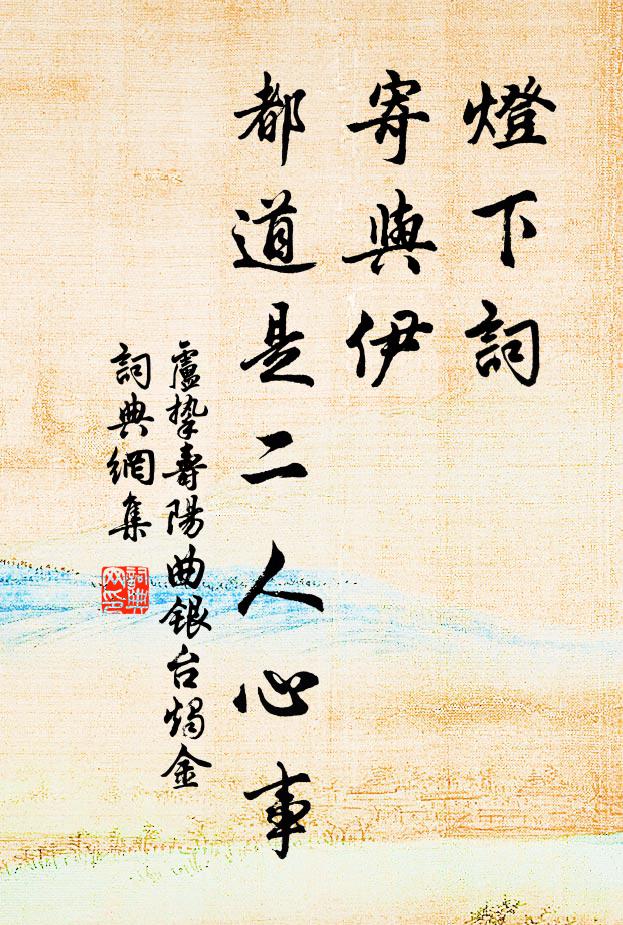 燈下詞
寄與伊
都道是二人心事
盧摯壽陽曲銀台燭金
詞典網集
詞典網印